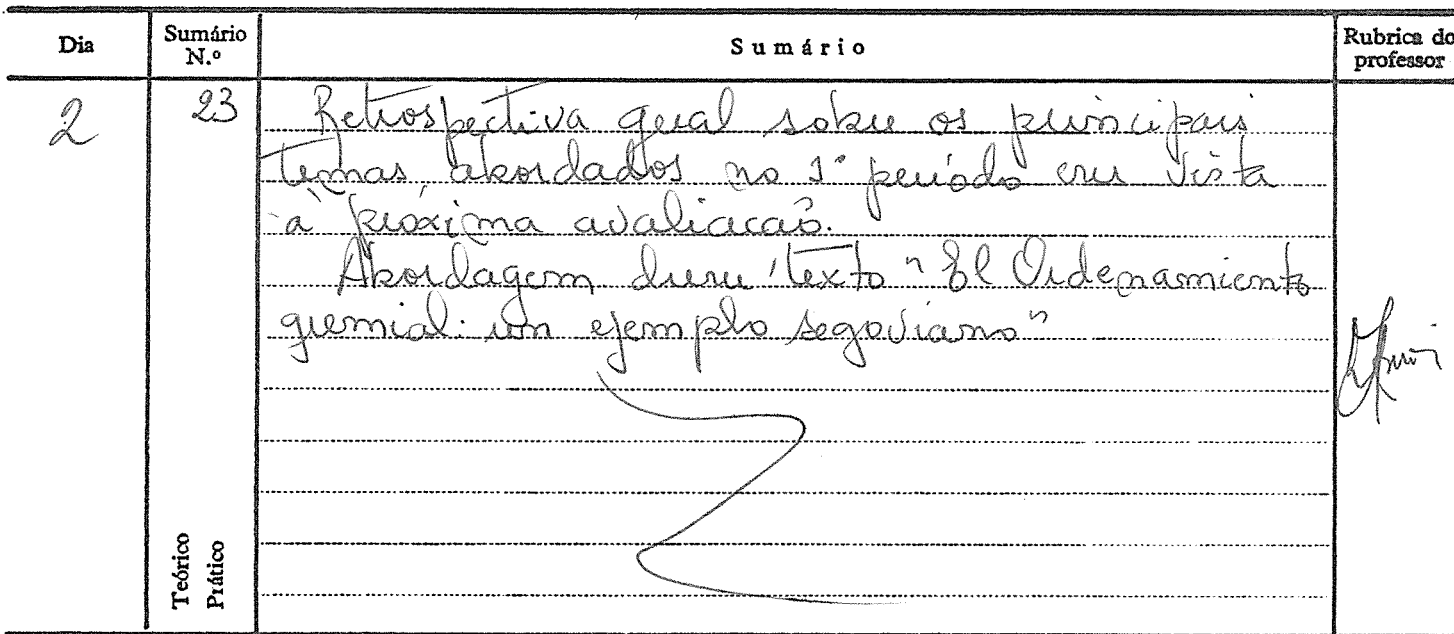 Dia
Sumário N.º
Sumário
Rubrica do professor
2
23
Retrospectiva geral sobre os principais
temas, abordados no 1º período em vista
à próxima avaliacaõ.
Abordagem dum texto "El Ordenamiento
gremial: un ejemplo segoviano"
Teórico
Prático